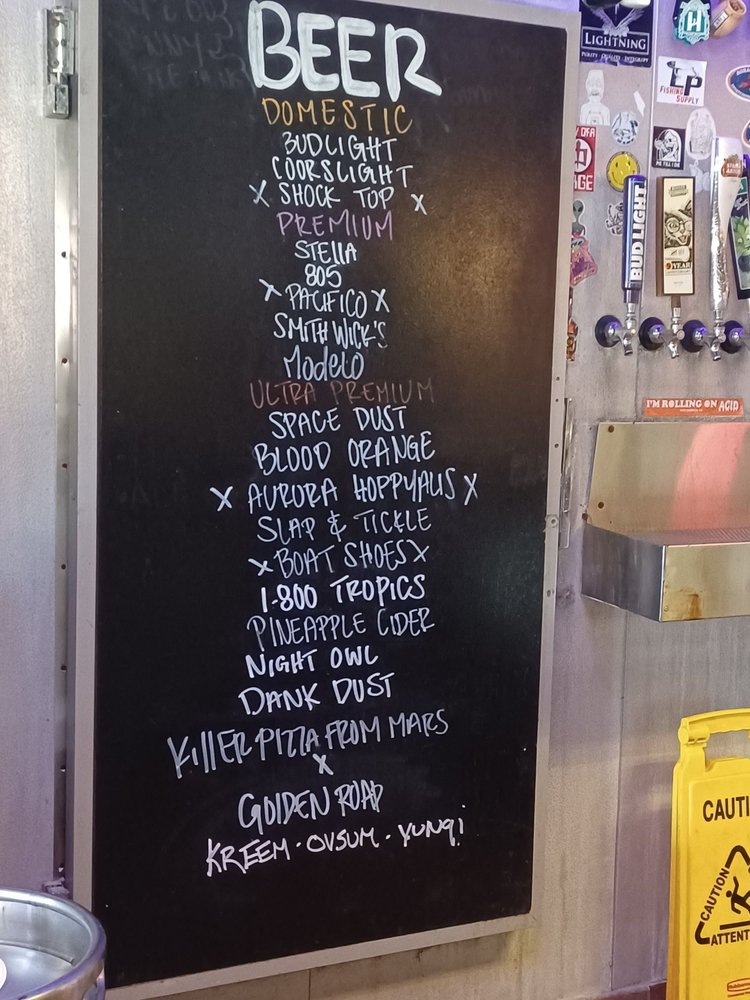 BEER
DOMESTIC
BUDLIGHT
COORSLIGHT
X SHOCK TOP X
PREMIUM
STELLA
805
X PACIFICO X
SMITHWICK'S
Modelo
ULTRA PREMIUM
SPACE DUST
BLOOD ORANGE
X AURORA HOPPYALIS X
SLAP & TICKLE
X BOAT SHOES X
1-800 TROPICS
PINEAPPLE CIDER
NIGHT OWL
DANK DUST
KILLER PIZZA FROM MARS
X
GOLDEN ROAD
KREEM · OVSUM · YUNQi
LIGHTNING
LP
FISHING
SUPPLY
BUD LIGHT
I'M ROLLING ON ACID
CAUTI
CAUTION
ATTENT